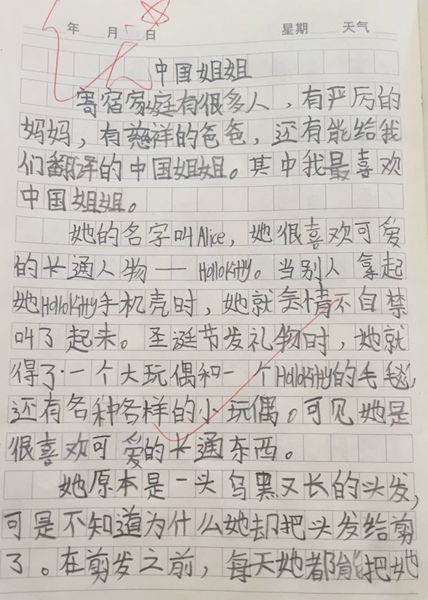 年 月 日 星期 天气
优
中国姐姐
寄宿家庭有很多人，有严厉的
妈妈，有慈祥的爸爸，还有能给我
们翻译的中国姐姐。其中我最喜欢
中国姐姐。
她的名字叫Alice，她很喜欢可爱
的卡通人物——HolloKitty。当别人拿起
她HolloKitty手机壳时，她就会情不自禁
叫了起来。圣诞节发礼物时，她就
得了一个大玩偶和一个HolloKitty的毛毯，
还有各种各样的小玩偶。可见她是
很喜欢可爱的卡通东西。
她原本是一头乌黑又长的头发，
可是不知道为什么她却把头发给剪
了。在剪发之前，每天她都能把她